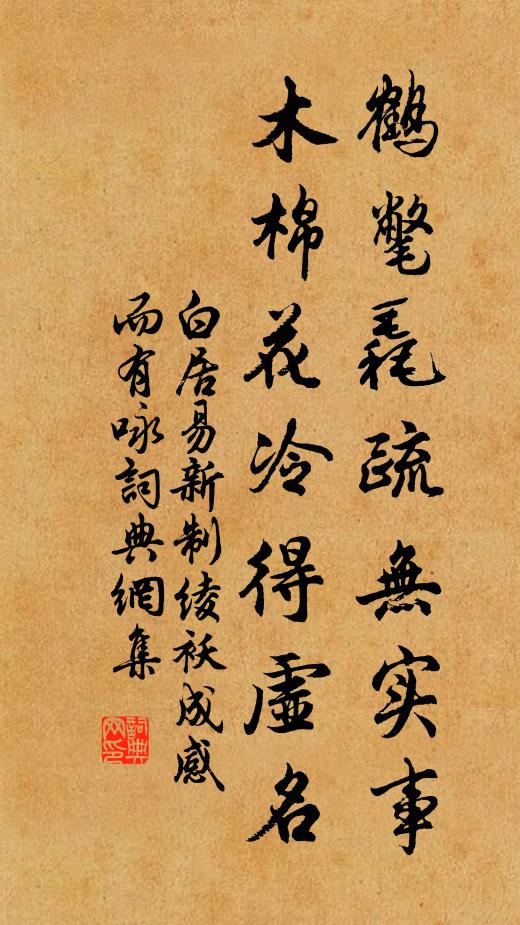 鶴氅毳疏無实事
木棉花冷得虛名
白居易新制綾袄成感
而有咏詞典網集
詞典
网印